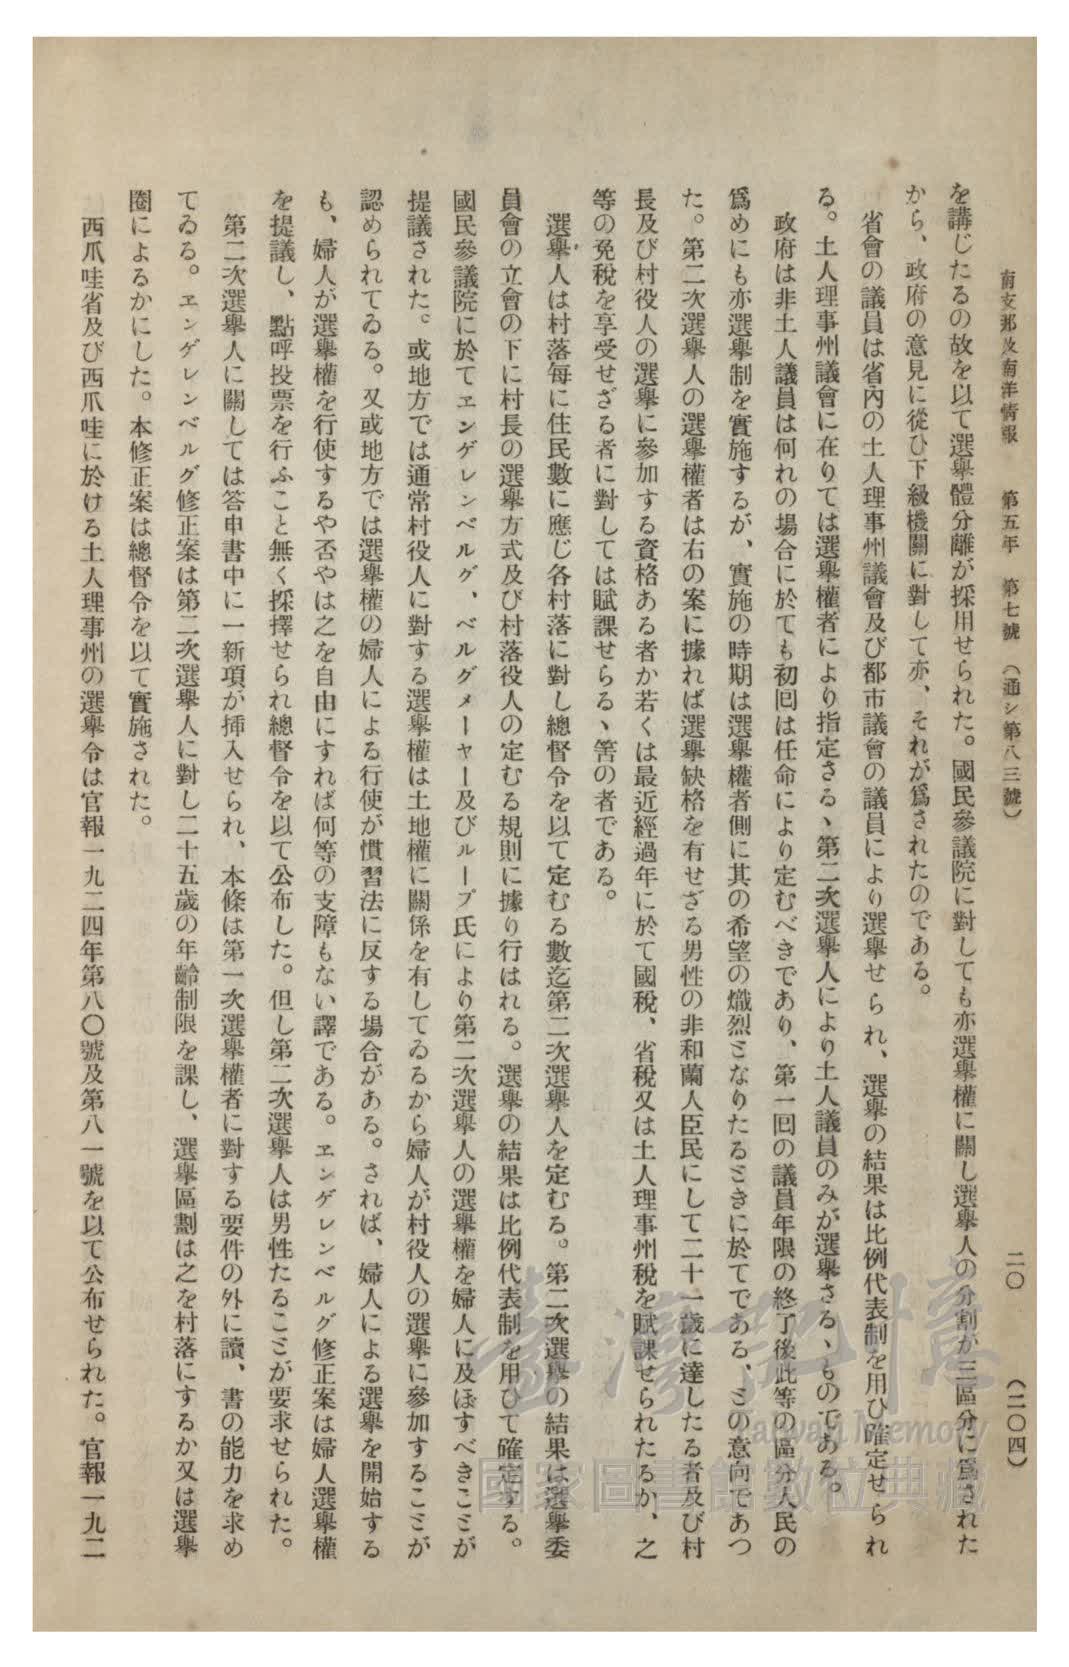 南支那及南洋情報　第五年　第七號　（通シ第八三號）　二〇　（二〇四）
を講じたるの故を以て選擧體分離が採用せられた。國民參議院に對しても亦選擧權に關し選擧人の分割が三區分に爲された
から、政府の意見に從ひ下級機關に對して亦、それが爲されたのである。
省會の議員は省內の土人理事州議會及び都市議會の議員により選擧せられ、選擧の結果は比例代表制を用ひ確定せられ
る。土人理事州議會に在りては選擧權者により指定さるゝ第二次選擧人により土人議員のみが選擧さるゝものである。
政府は非土人議員は何れの場合に於ても初回は任命により定むべきであり、第一回の議員年限の終了後此等の區分人民の
爲めにも亦選擧制を實施するが、實施の時期は選擧權者側に其の希望の熾烈となりたるときに於てである、との意向であつ
た。第二次選擧人の選擧權者は右の案に據れば選擧缺格を有せざる男性の非和蘭人臣民にして二十一歲に達したる者及び村
長及び村役人の選擧に參加する資格ある者か若くは最近經過年に於て國稅、省稅又は土人理事州稅を賦課せられたるか、之
等の免稅を享受せざる者に對しては賦課せらるゝ筈の者である。
選擧人は村落每に住民數に應じ各村落に對し總督令を以て定むる數迄第二次選擧人を定むる。第二次選擧の結果は選擧委
員會の立會の下に村長の選擧方式及び村落役人の定むる規則に據り行はれる。選擧の結果は比例代表制を用ひて確定する。
國民參議院に於てエンゲレンベルグ、ベルグメーヤー及びループ氏により第二次選擧人の選擧權を婦人に及ぼすべきことが
提議された。或地方では通常村役人に對する選擧權は土地權に關係を有してゐるから婦人が村役人の選擧に參加することが
認められてゐる。又或地方では選擧權の婦人による行使が慣習法に反する場合がある。されば、婦人による選擧を開始する
も、婦人が選擧權を行使するや否やは之を自由にすれば何等の支障もない譯である。エンゲレンベルグ修正案は婦人選擧權
を提議し、點呼投票を行ふこと無く採擇せられ總督令を以て公布した。但し第二次選擧人は男性たることが要求せられた。
第二次選擧人に關しては答申書中に一新項が挿入せられ、本條は第一次選擧權者に對する要件の外に讀、書の能力を求め
てゐる。エンゲレンベルグ修正案は第二次選擧人に對し二十五歲の年齡制限を課し、選擧區劃は之を村落にするか又は選擧
圈によるかにした。本修正案は總督令を以て實施された。
西爪哇省及び西爪哇に於ける土人理事州の選擧令は官報一九二四年第八〇號及第八一號を以て公布せられた。官報一九二
臺灣記憶
Taiwan Memory
國家圖書館數位典藏